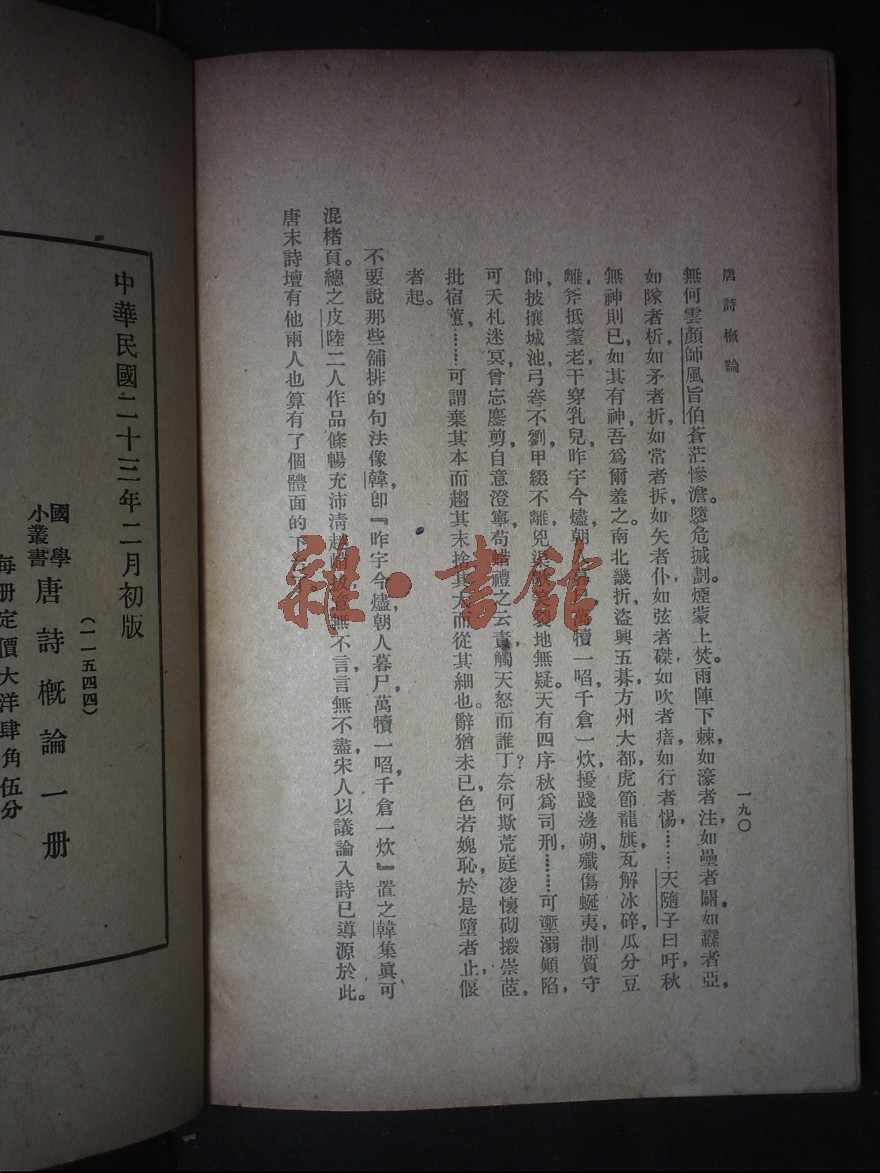 唐詩概論
一九〇
無何雲顏師風旨伯蒼茫慘澹隳危摵劃。煙蒙上焚。雨陣下棘。如濠者注,如壘者闢,如纛者亞,
如隊者析,如矛者折,如常者拆,如矢者仆,如弦者磔,如吹者瘖,如行者惕,………天隨子曰吁秋
無神則已,如其有神,吾爲爾羞之。南北畿折,盜興五朞,方州大都,虎節龍旗,瓦解冰碎,瓜分豆
離,斧抵耋老,干穿乳兒,昨宇今燼,朝人暮尸,萬犢一啗,千倉一炊,擾踐邊朔,殲傷蜒夷,制質守
帥,披攘城池,弓卷不劉,甲綴不離,兇渠 裂地無疑。天有四序,秋爲司刑………可壍溺顚陷,
可夭札迷冥,曾忘鏖剪,自意澄寧,苟蜡禮之云責,觸天怒而誰丁?奈何欺荒庭,凌懷砌,搬崇茝,
批宿蕙,………可謂棄其本而趨其末,捨其大而從其細也。辭猶未已,色若媿恥,於是墮者止,偃
者起。
不要說那些舖排的句法像韓,卽『昨宇今燼,朝人暮尸,萬犢一啗,千倉一炊』置之韓集眞可
混楮頁。總之皮陸二人作品條暢充沛淸 意無不言,言無不盡,宋人以議論入詩已導源於此。
唐末詩壇有他兩人也算有了個體面的下
中華民國二十三年二月初版
(一一五四四)
國學小叢書 唐詩概論一册
每册定價大洋肆角伍分
雜·書館